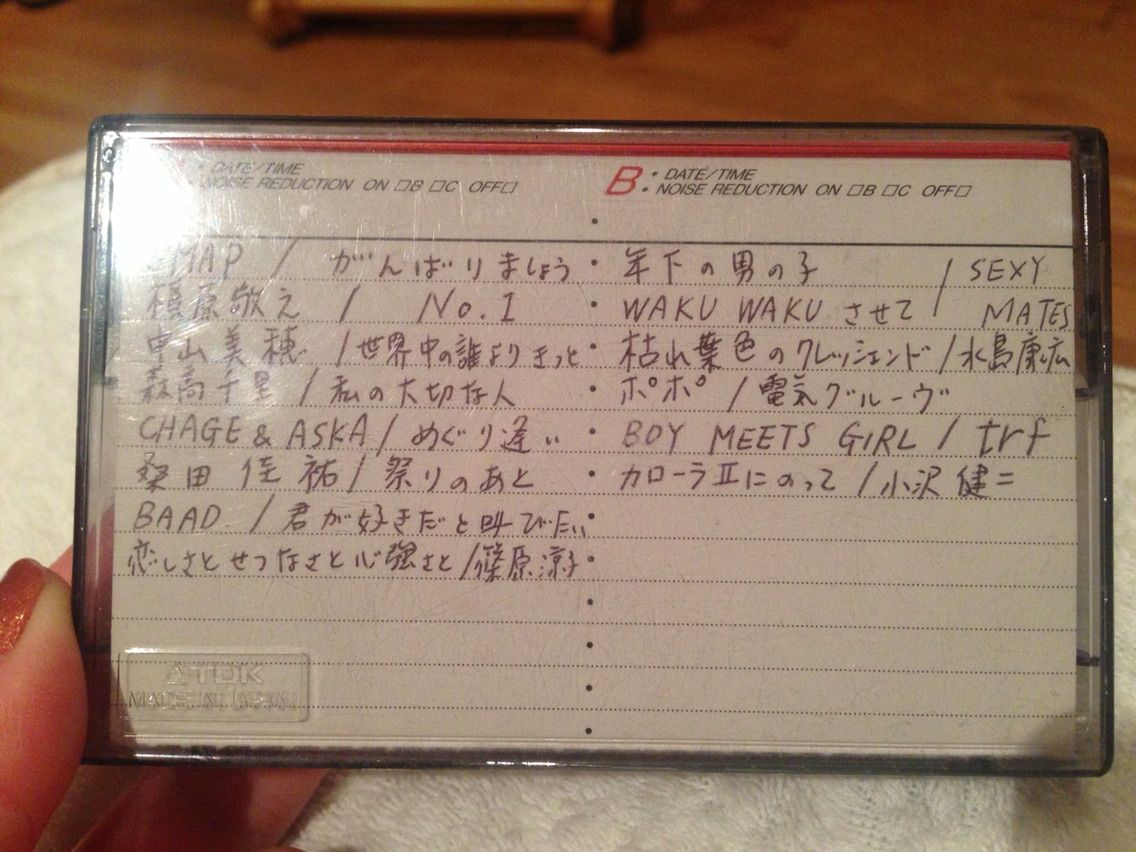 • DATE/TIME
NOISE REDUCTION ON □B □C OFF□
SMAP / がんばりましょう
槇原敬之 / No.1
中山美穂 / 世界中の誰よりきっと
森高千里 / 私の大切な人
CHAGE & ASKA / めぐり逢い
桑田佳祐 / 祭りのあと
BAAD / 君が好きだと叫びたい
恋しさとせつなさと心強さと / 篠原涼子
B • DATE/TIME
• NOISE REDUCTION ON □B □C OFF□
年下の男の子 / SEXY
WAKU WAKU させて / MATES
枯れ葉色のクレッシェンド / 水島康広
ポポ / 電気グルーヴ
BOY MEETS GIRL / trf
カローラⅡにのって / 小沢健二
TDK
MADE IN JAPAN